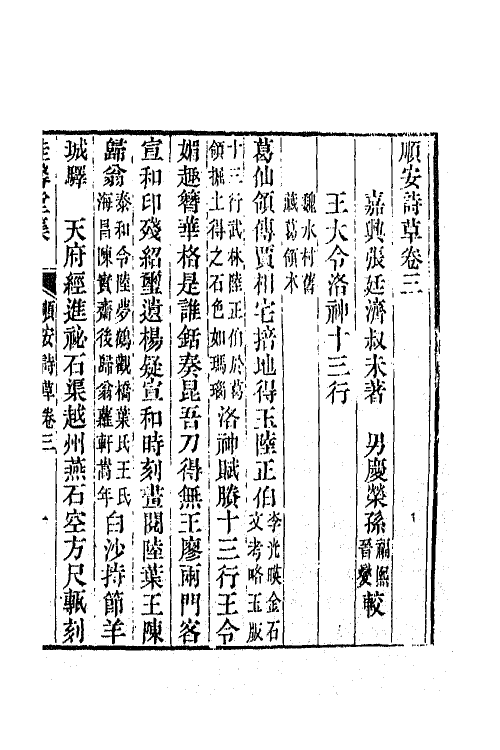 順安詩草卷三
嘉興張廷濟叔未著　男慶榮孫福熙晉燮較
王大令洛神十三行
魏水村舊藏葛領本
葛仙領傳賈相宅掊地得玉陸正伯李光暎金石文考略玉版
十三行武林陸正伯於葛領掘土得之石色如瑪瑙洛神賦賸十三行王令
娟趣簪華格是誰銛奏昆吾刀得無王廖兩門客
宣和印殘紹璽遺楊疑宣和時刻萱閱陸葉王陳
歸翁泰和令陸夢鶴觀橋葉氏王氏海昌陳實齋後歸翁蘿軒嵩年白沙持節羊
城驛　天府經進祕石渠越州燕石空方尺輒刻
桂馨堂集　順安詩草卷三　一